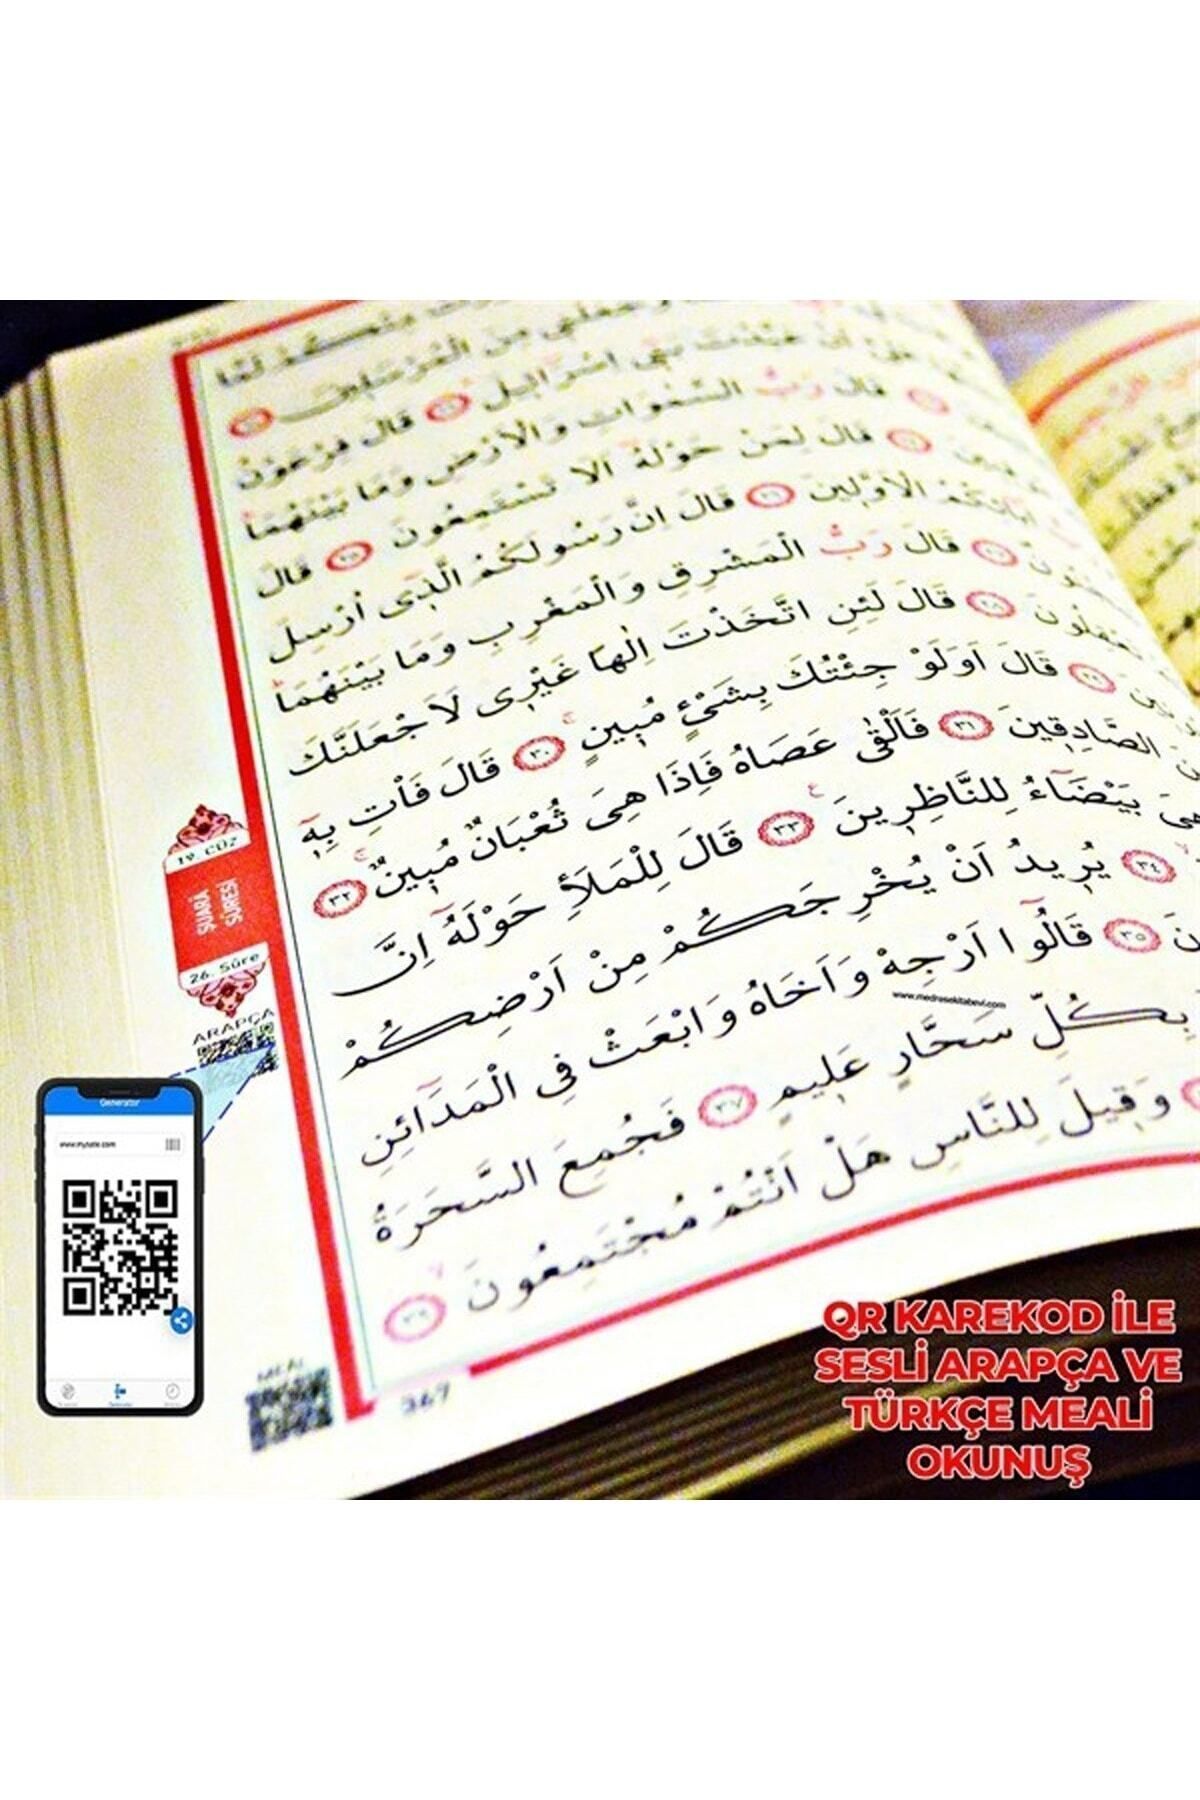 لَمَّا
وَجَعَلَنِي مِنَ الْمُرْسَلِينَ
عَبَّدْتَ بَنِي اِسْرَائِيلَ ﴿٢٢﴾ قَالَ فِرْعَوْنُ
قَالَ رَبُّ السَّمٰوَاتِ وَالْاَرْضِ وَمَا بَيْنَهُمَا
قَالَ لِمَنْ حَوْلَهُ اَلَا تَسْتَمِعُونَ ﴿٢٥﴾ قَالَ
اٰبَائِكُمُ الْاَوَّلِينَ ﴿٢٦﴾ قَالَ اِنَّ رَسُولَكُمُ الَّذِى اُرْسِلَ
قَالَ رَبُّ الْمَشْرِقِ وَالْمَغْرِبِ وَمَا بَيْنَهُمَا
﴿٢٨﴾ قَالَ لَئِنِ اتَّخَذْتَ اِلٰهًا غَيْرِى لَاَجْعَلَنَّكَ
﴿٢٩﴾ قَالَ اَوَلَوْ جِئْتُكَ بِشَىْءٍ مُبِينٍ ﴿٣٠﴾ قَالَ فَاْتِ بِهِ
الصَّادِقِينَ ﴿٣١﴾ فَاَلْقٰى عَصَاهُ فَاِذَا هِىَ ثُعْبَانٌ مُبِينٌ ﴿٣٢﴾
هِىَ بَيْضَاءُ لِلنَّاظِرِينَ ﴿٣٣﴾ قَالَ لِلْمَلَاِ حَوْلَهُ اِنَّ
﴿٣٤﴾ يُرِيدُ اَنْ يُخْرِجَكُمْ مِنْ اَرْضِكُمْ
﴿٣٥﴾ قَالُوا اَرْجِهْ وَاَخَاهُ وَابْعَثْ فِى الْمَدَائِنِ
بِكُلِّ سَحَّارٍ عَلِيمٍ ﴿٣٧﴾ فَجُمِعَ السَّحَرَةُ
وَقِيلَ لِلنَّاسِ هَلْ اَنْتُمْ مُجْتَمِعُونَ ﴿٣٩﴾
19. CÜZ
ŞUARÂ
SÛRESİ
26. Sûre
ARAPÇA
www.medresekitabevi.com
Generator
MEAL
367
QR KAREKOD İLE
SESLİ ARAPÇA VE
TÜRKÇE MEALİ
OKUNUŞ